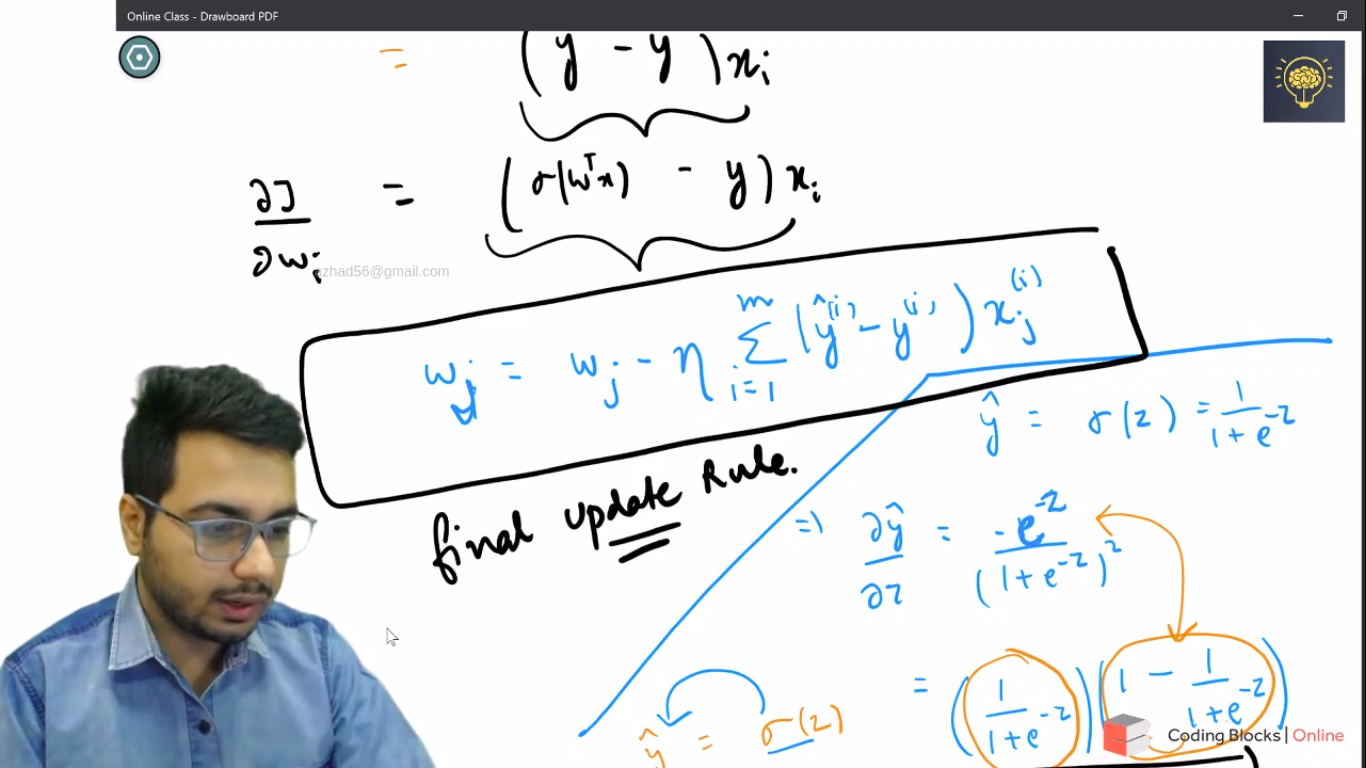 Online Class - Drawboard PDF
= (y - y)xᵢ
∂J/∂wᵢ = (σ(wᵀx) - y)xᵢ
azhad56@gmail.com
wⱼ = wⱼ - η Σᵢ₌₁ᵐ (ŷ⁽ⁱ⁾ - y⁽ⁱ⁾) xⱼ⁽ⁱ⁾
final update Rule.
ŷ = σ(z) = 1/(1+e⁻ᶻ)
=) ∂ŷ/∂z = -e⁻ᶻ/(1+e⁻ᶻ)²
= (1/(1+e⁻ᶻ)) (1 - 1/(1+e⁻ᶻ))
ŷ = σ(z)
Coding Blocks | Online